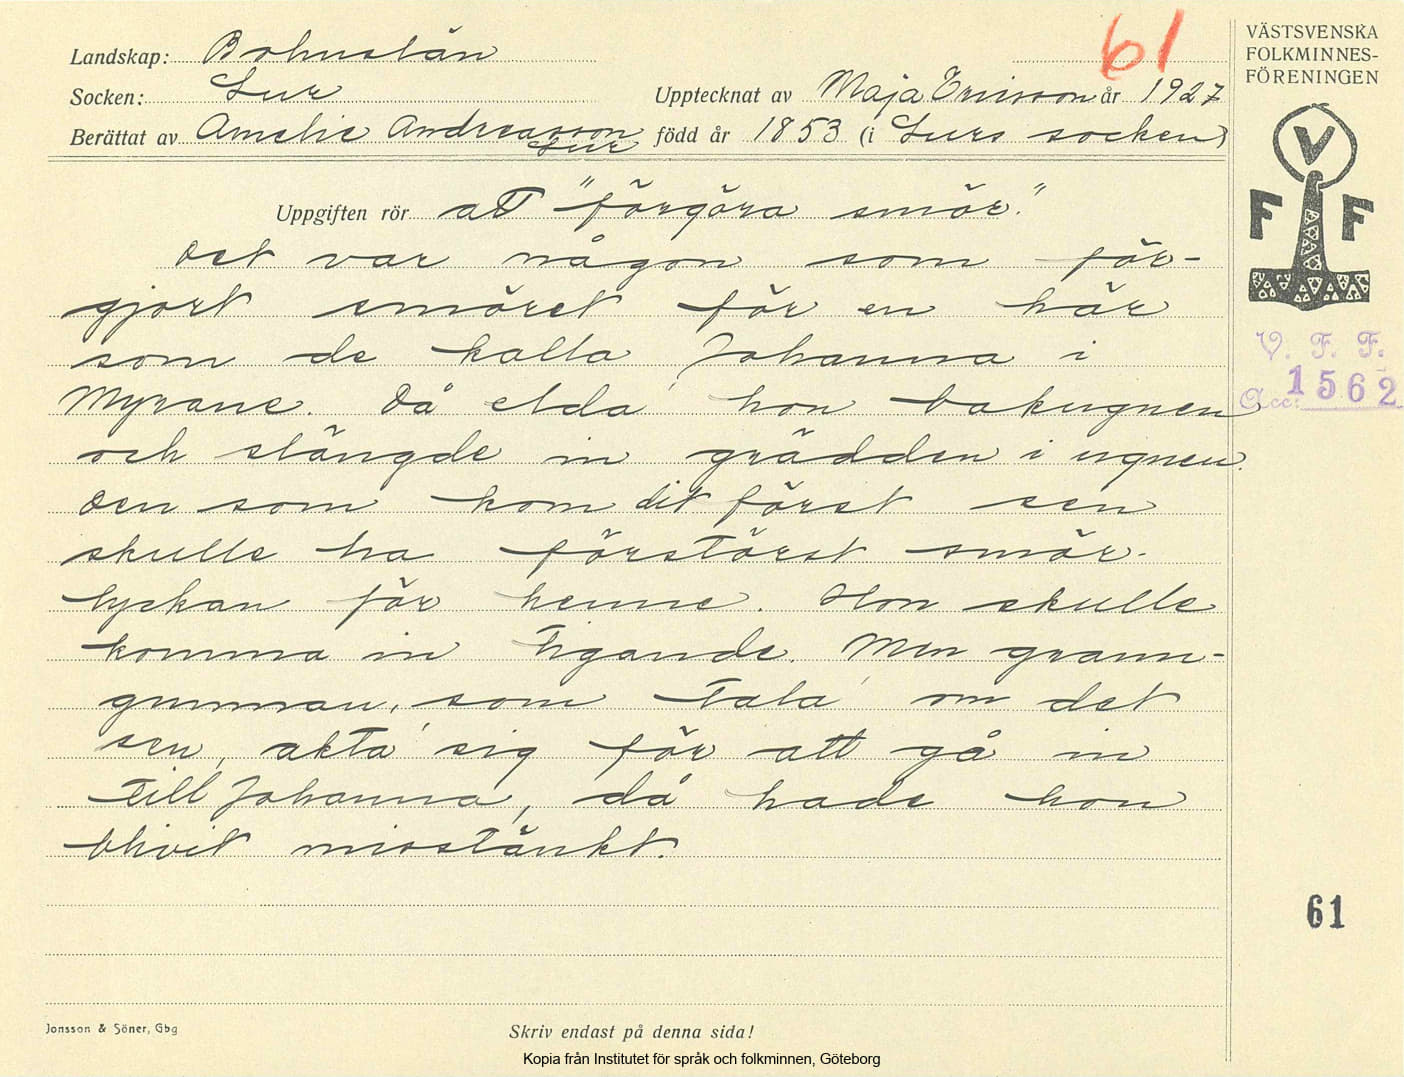 61
Landskap: Bohuslän
Socken: Lur
Upptecknat av Maja Ericsson år 1927
Berättat av Amelie Andreasson
Lur
född år 1853 (i Lurs socken)
Uppgiften rör att "förgöra smör".
Det var någon som för-
gjort smöret för en här
som de kalla' Johanna i
Myrane. Då elda' hon bakugnen
och slängde in grädden i ugnen.
Den som kom dit först sen
skulle ha förstörst smör-
lyckan för henne. Hon skulle
komma in tigande. Men grann-
gumman, som tala' om det
sen, akta' sig för att gå in
till Johanna, då hade hon
blivit misstänkt.
Jonsson & Söner, Gbg
Skriv endast på denna sida!
Kopia från Institutet för språk och folkminnen, Göteborg
VÄSTSVENSKA
FOLKMINNES-
FÖRENINGEN
V
F F
V. F. F.
Acc: 1562
61